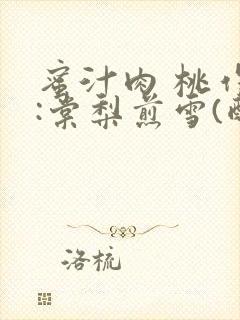 蜜汁肉桃作
:棠梨煎雪(
洛梳